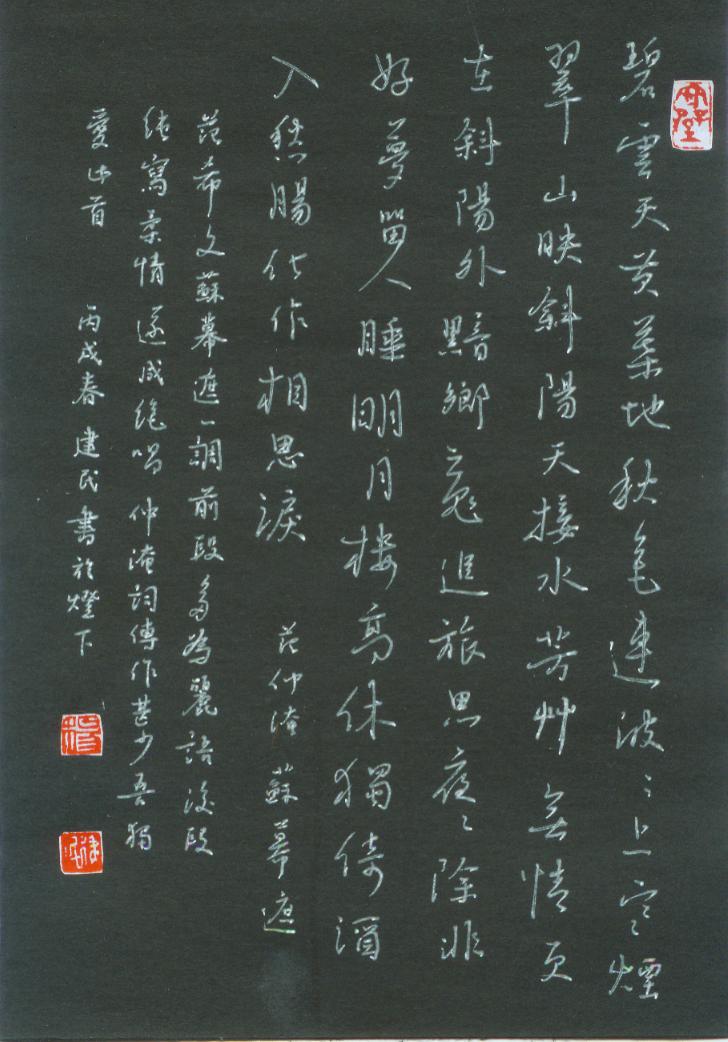 碧雲天黄葉地秋色連波〻上寒〻煙
翠山映斜陽天接水芳艸無情更
在斜陽外黯鄉魂追旅思夜〻除非
好夢留人睡明月樓高休獨倚酒
入愁腸化作相思淚
范仲淹蘇幕遮
范希文蘇幕遮一調前段多為麗語後段
純寫柔情遂成絕唱仲淹詞傳作甚少吾獨
愛此首
丙戌春建民書於燈下